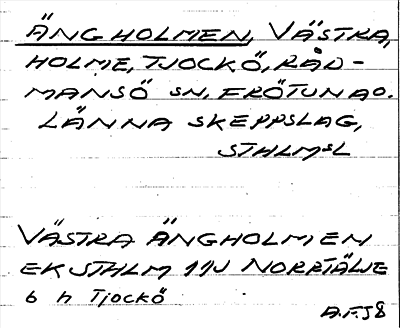 ÄNGHOLMEN, VÄSTRA,
HOLME, TJOCKÖ, RÅD-
MANSÖ SN, FRÖTUNA O.
LÄNNA SKEPPSLAG,
STHLMSL
VÄSTRA ÄNGHOLMEN
EK STHLM 11J NORRTÄLJE
6 h Tjockö